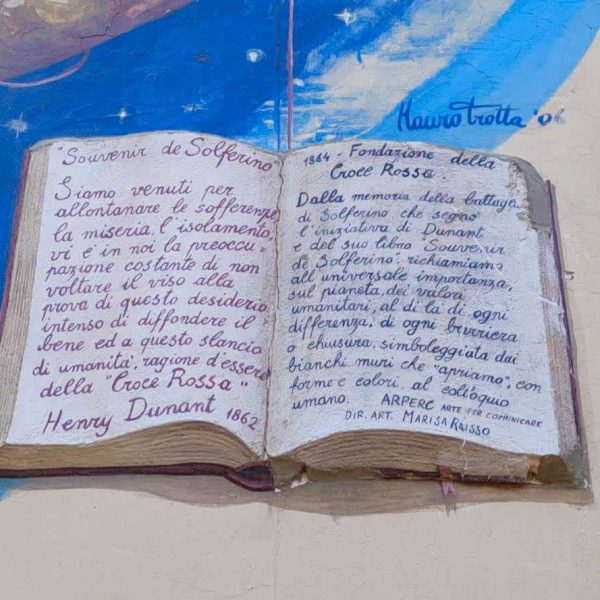 Mauro Trotta '06
"Souvenir de Solferino"
Siamo venuti per
allontanare le sofferenze
la miseria, l'isolamento,
vi è in noi la preoccu-
pazione costante di non
voltare il viso alla
prova di questo desiderio
intenso di diffondere il
bene ed a questo slancio
di umanità, ragione d'essere
della "Croce Rossa"
Henry Dunant 1862
1864 - Fondazione della
Croce Rossa.
Dalla memoria della battaglia
di Solferino che segnò
l'iniziativa di Dunant
e del suo libro "Souvenir
de Solferino", richiamiamo
all'universale importanza,
sul pianeta, dei valori
umanitari, al di là di ogni
differenza, di ogni
o chiusura, simboleggiata dai
bianchi muri che "apriamo", con
forme e colori, al colloquio
umano. ARPERC ARTE PER COMUNICARE
DIR. ART. MARISA RUSSO